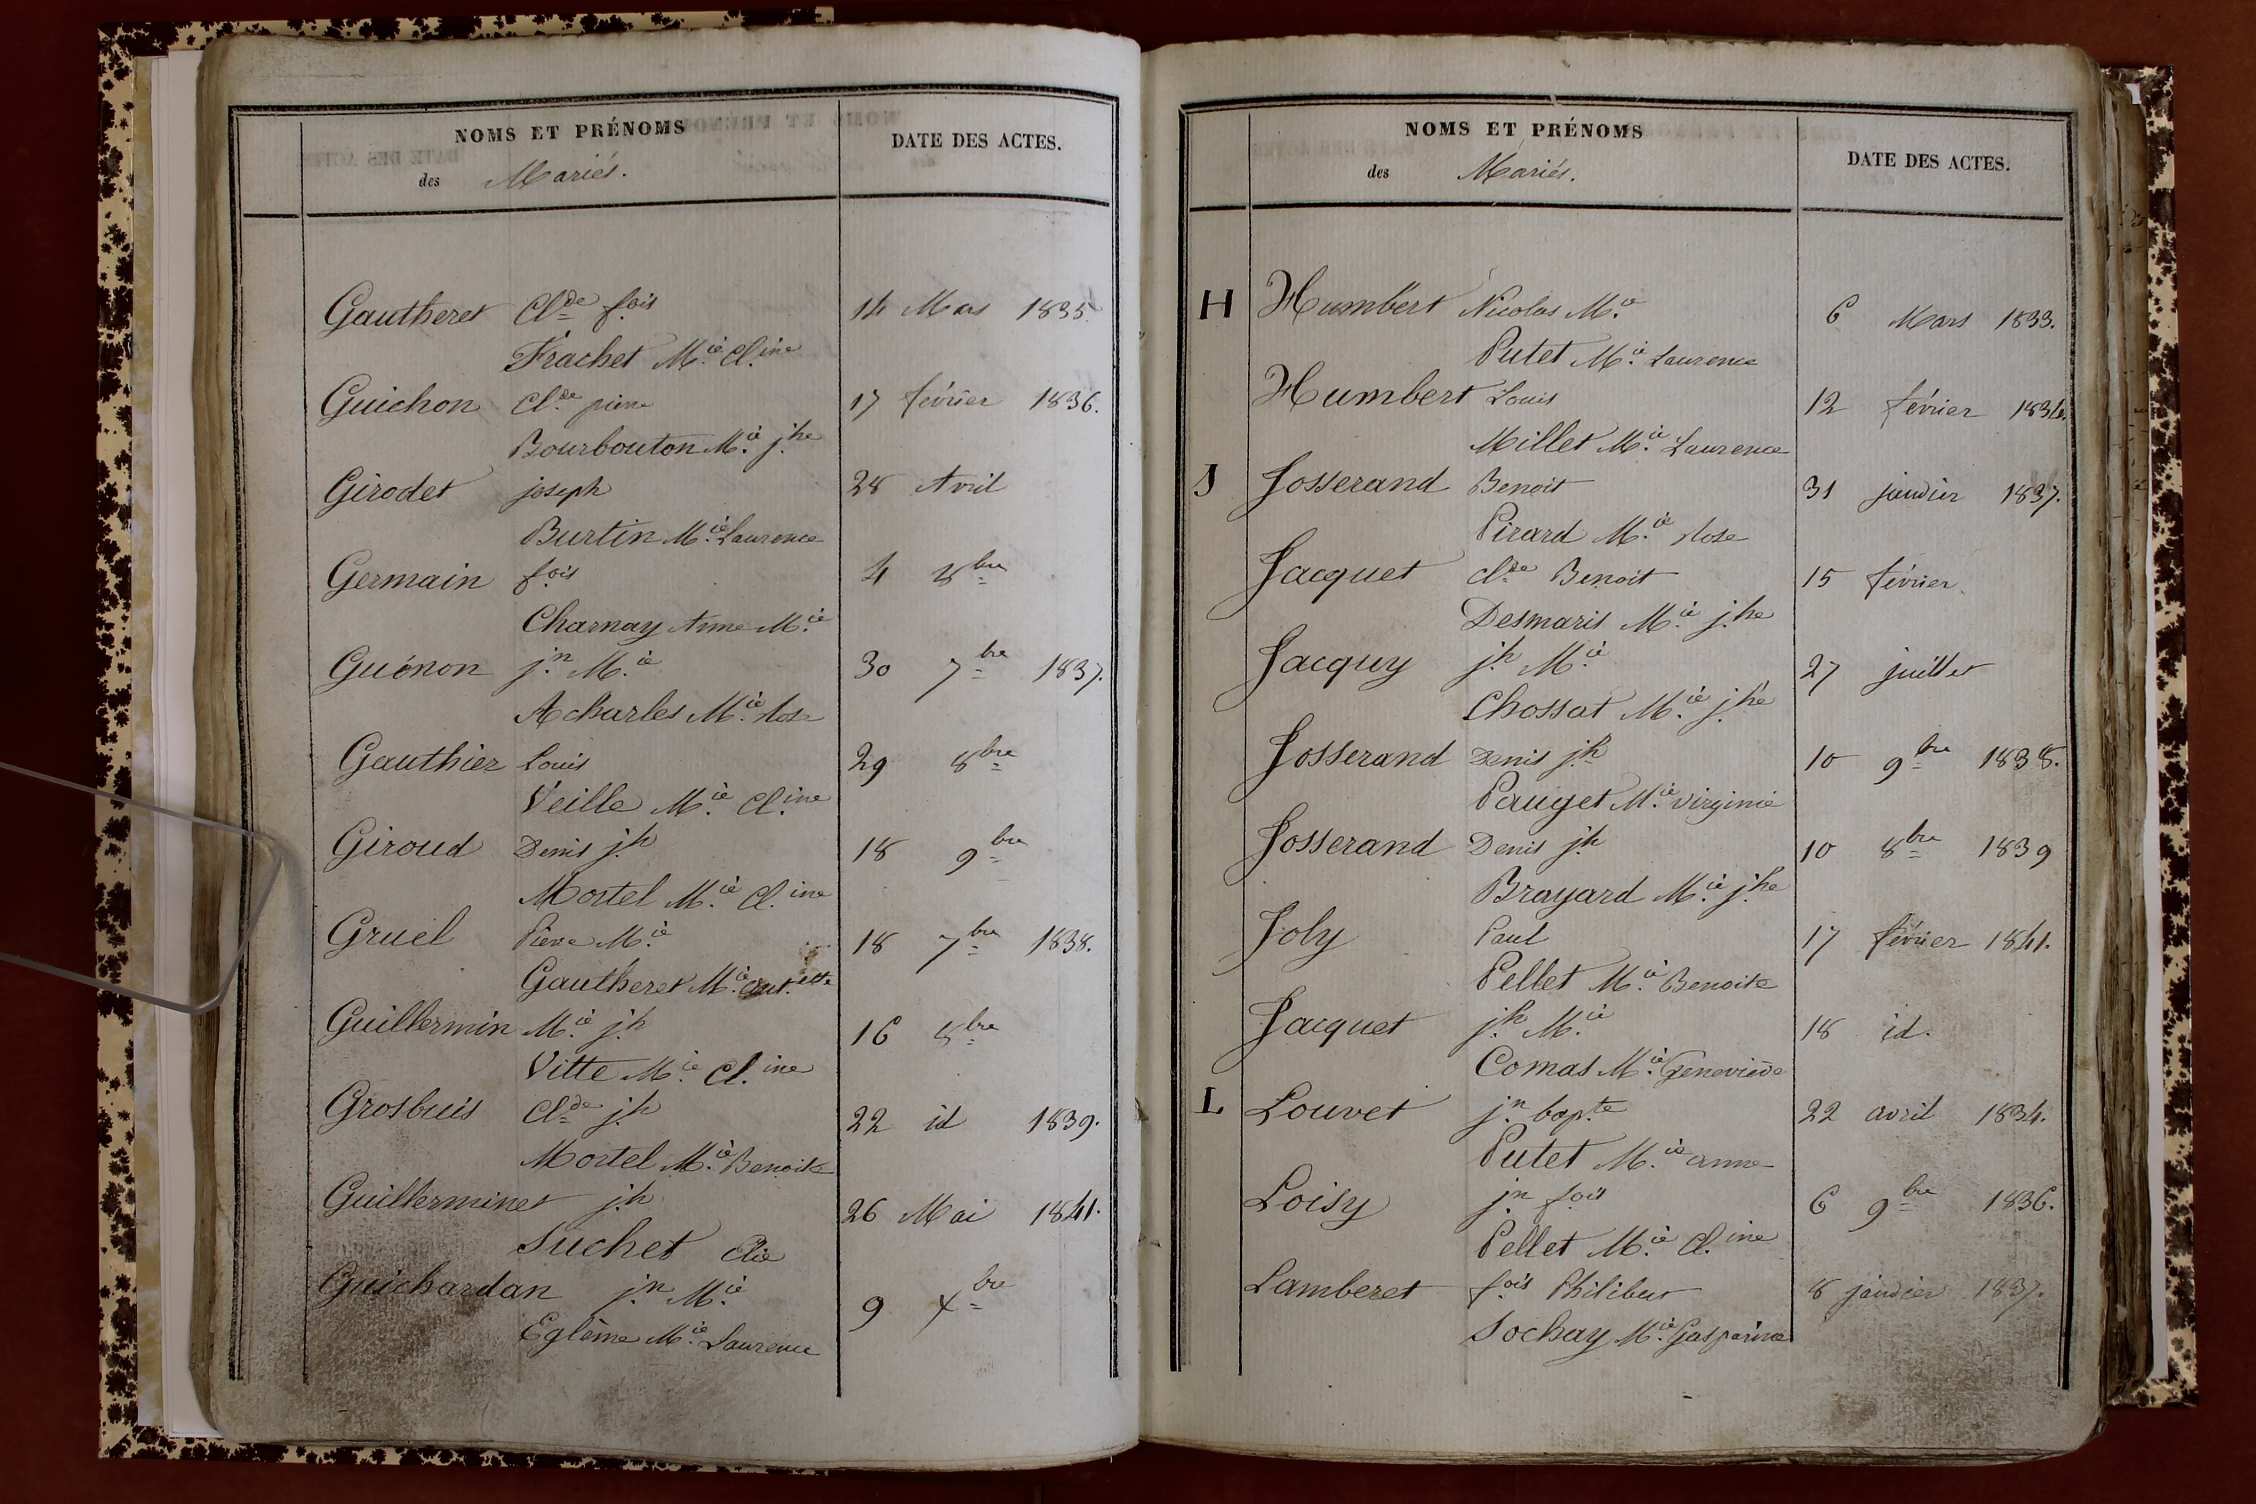 NOMS ET PRÉNOMS
des Mariés.
DATE DES ACTES.
Gautheret Cl.de f.ois 14 Mars 1835.
Frachet M.ie Cl.ine
Guichon Cl.de pierre 17 février 1836.
Bourbouton M.ie j.he
Girodet joseph 28 Avril
Burtin M.ie Laurence
Germain f.ois 4 8bre
Charnay Anne M.ie
Guénon j.n M.ie 30 7bre 1837.
Acharles M.ie Rose
Gauthier Louis 29 8bre
Veille M.ie Cl.ine
Giroud Denis j.h 18 9bre
Mortel M.ie Cl.ine
Gruel Pierre M.ie 18 7bre 1838.
Gautheret M.ie ant.ette
Guillermin M.ie j.h 16 8bre
Vitte M.ie Cl.ine
Grosbuis Cl.de j.h 22 id 1839.
Mortel M.ie Benoite
Guilleminet j.h 26 Mai 1841.
Suchet
Guichardan j.n M.ie 9 Xbre
Eglème M.ie Laurence
NOMS ET PRÉNOMS
des Mariés.
DATE DES ACTES.
H Humbert Nicolas M.ie 6 Mars 1833.
Putet M.ie Laurence
Humbert Louis 12 février 1834.
Millet M.ie Laurence
J Josserand Benoit 31 janvier 1837.
Pirard M.ie Rose
Jacquet Cl.de Benoit 15 février
Desmaris M.ie j.he
Jacquy j.h M.ie 27 juillet
Chossat M.ie j.he
Josserand Denis j.h 10 9bre 1838.
Pauget M.ie virginie
Josserand Denis j.h 10 8bre 1839
Brayard M.ie j.he
Joly Paul 17 février 1841.
Pellet M.ie Benoite
Jacquet j.h M.ie 18 id.
Comas M.ie Geneviève
L Louvet j.n bap.te 22 avril 1834.
Putet M.ie anne
Loisy j.n f.ois 6 9bre 1836.
Pellet M.ie Cl.ine
Lamberet f.ois Philibert 8 janvier 1837.
Sochay M.ie Gasparine